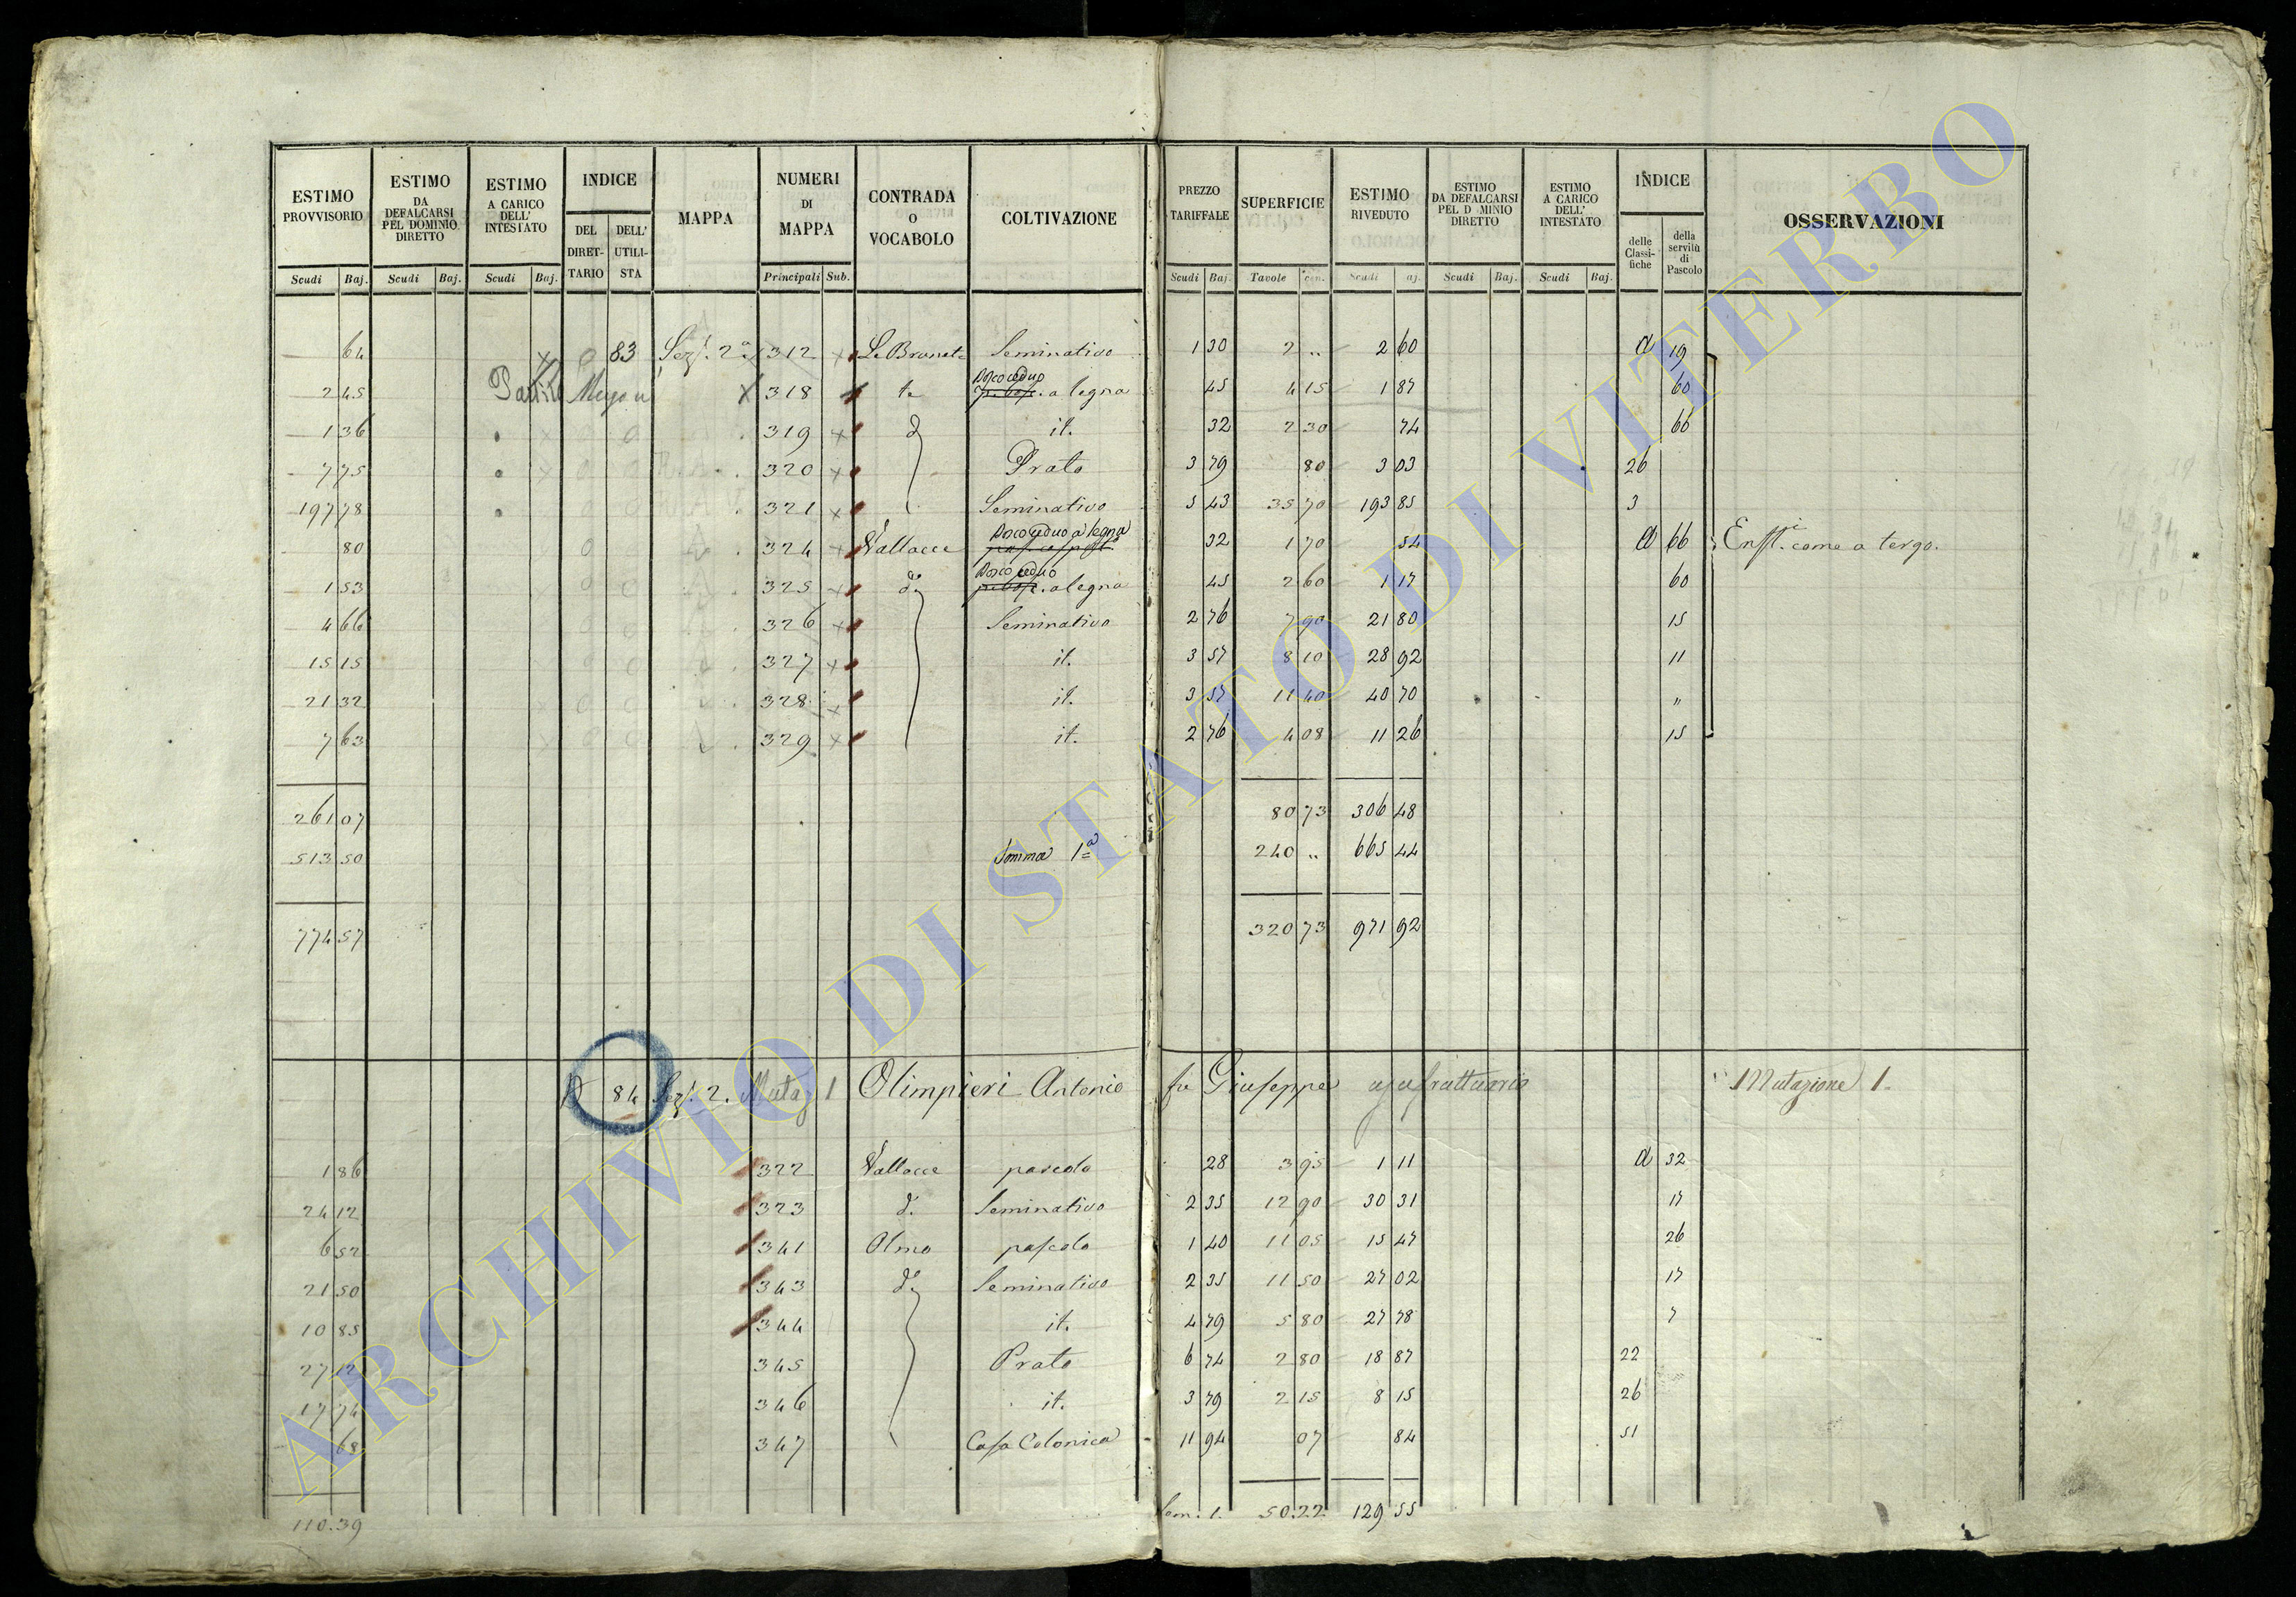 ESTIMO PROVVISORIO Scudi Baj. ESTIMO DA DEFALCARSI PEL DOMINIO DIRETTO Scudi Baj. ESTIMO A CARICO DELL' INTESTATO Scudi Baj. INDICE DEL DIRETTARIO DELL' UTILISTA MAPPA NUMERI DI MAPPA Principali Sub. CONTRADA O VOCABOLO COLTIVAZIONE PREZZO TARIFFALE Scudi Baj. SUPERFICIE Tavole cen. ESTIMO RIVEDUTO Scudi aj. ESTIMO DA DEFALCARSI PEL D MINIO DIRETTO Scudi Baj. ESTIMO A CARICO DELL' INTESTATO Scudi Baj. INDICE delle Classifiche della servitù di Pascolo OSSERVAZIONI
64 83 Sez. 2a 312 Le Brunete Seminativo 1 30 2 " 2 60 a 19
2 45 318 Bosco ceduo a legna 45 4 15 1 87 60
1 36 319 d it. 32 2 30 74 66
7 75 320 Prato 3 79 80 3 03 26
197 78 321 Seminativo 5 43 35 70 193 85 3
80 324 Vallacce Bosco ceduo a legna 32 1 70 54 a 66 come a tergo.
1 53 325 do Bosco ceduo a legna 45 2 60 1 17 60
4 66 326 Seminativo 2 76 7 90 21 80 15
15 15 327 it. 3 57 8 10 28 92 11
21 32 328 it. 3 57 11 40 40 70 "
7 63 329 it. 2 76 4 08 11 26 15
261 07 80 73 306 48
513 50 Somma 1a 240 " 665 44
774 57 320 73 971 92
84 Sez. 2. Mutaz 1 Olimpieri Antonio fu Giuseppe usufruttuario Mutazione 1.
1 86 322 Vallacce pascolo 28 3 95 1 11 a 32
24 12 323 d. Seminativo 2 35 12 90 30 31 17
6 52 341 Olmo pascolo 1 40 11 05 15 47 26
21 50 343 do Seminativo 2 35 11 50 27 02 17
10 85 344 it. 4 79 5 80 27 78 7
27 12 345 Prato 6 74 2 80 18 87 22
17 74 346 it. 3 79 2 15 8 15 26
68 347 Casa Colonica 11 94 07 84 51
110.39 Som. 1. 50.22 129 55
ARCHIVIO DI STATO DI VITERBO